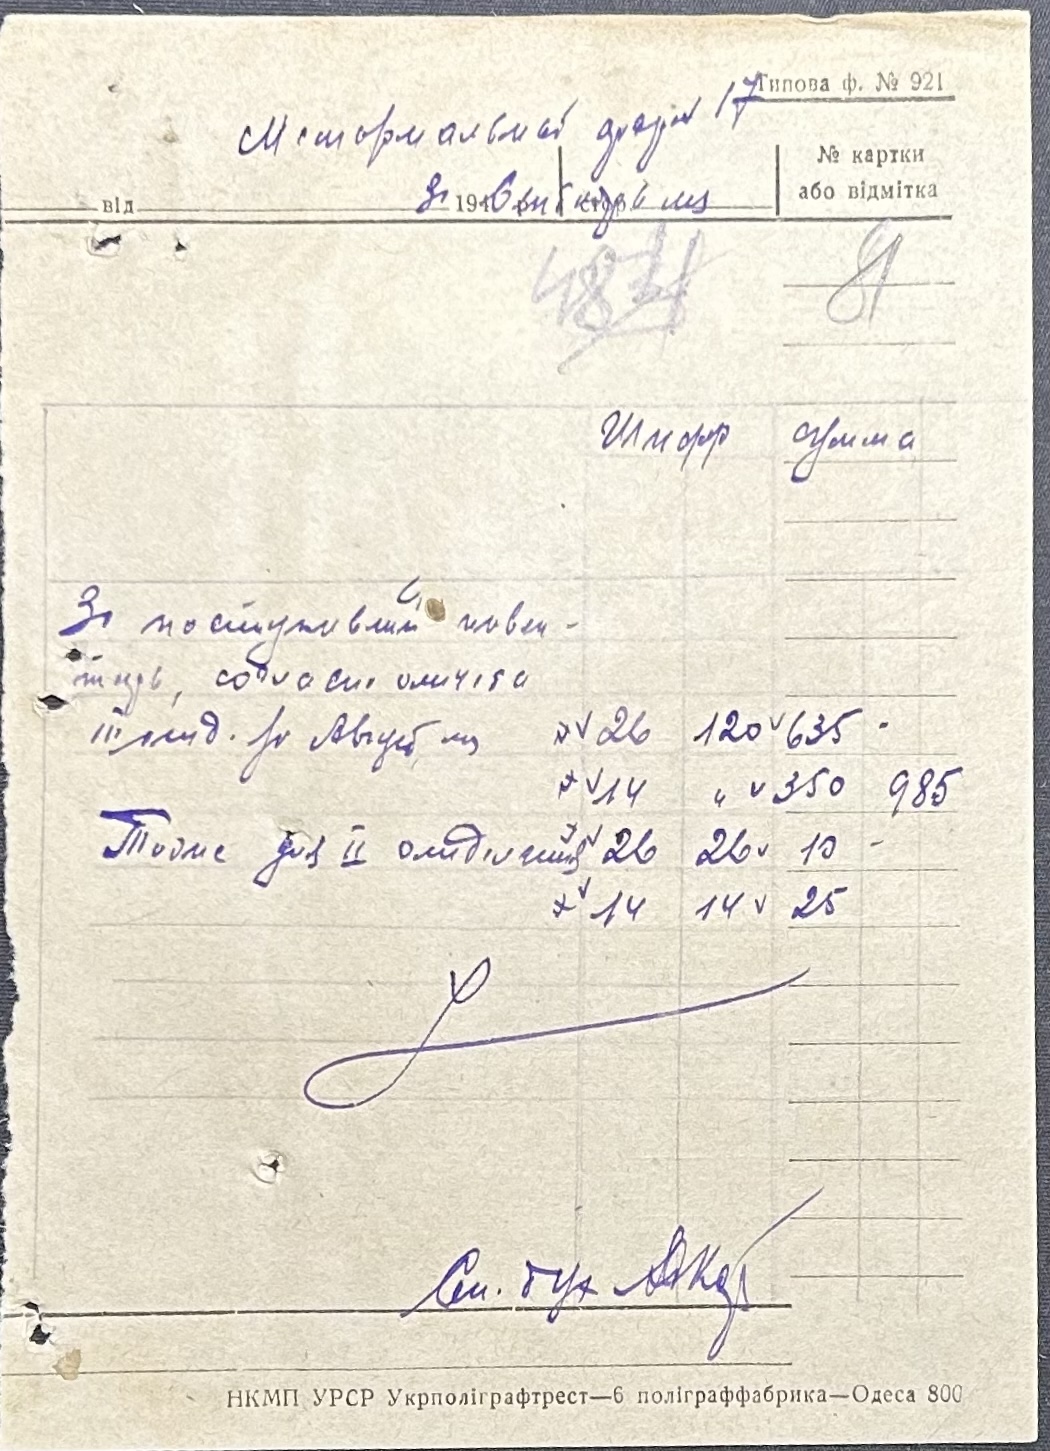 Типова ф. № 921
Мемориальный ордер 17
№ картки
або відмітка
від За 194 р. Октябрь м-ц
81
Шифр Сумма
За поступивший инвен-
тарь, согласно отчёта
III отд. за Август м-ц 26 120 635 -
14 " 350 985
Тоже для II отделения 26 26 10 -
14 14 25
Ст. бух
НКМП УРСР Укрполіграфтрест—6 поліграффабрика—Одеса 800